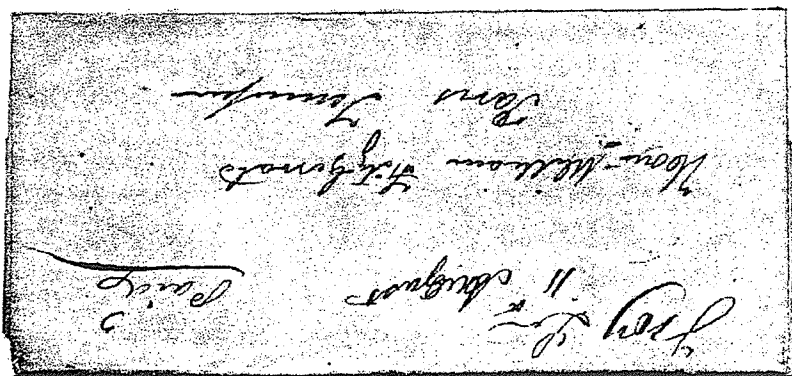 Troy Ten
11 August
Paid
Hon. William Fitzgerald
Paris Tennessee